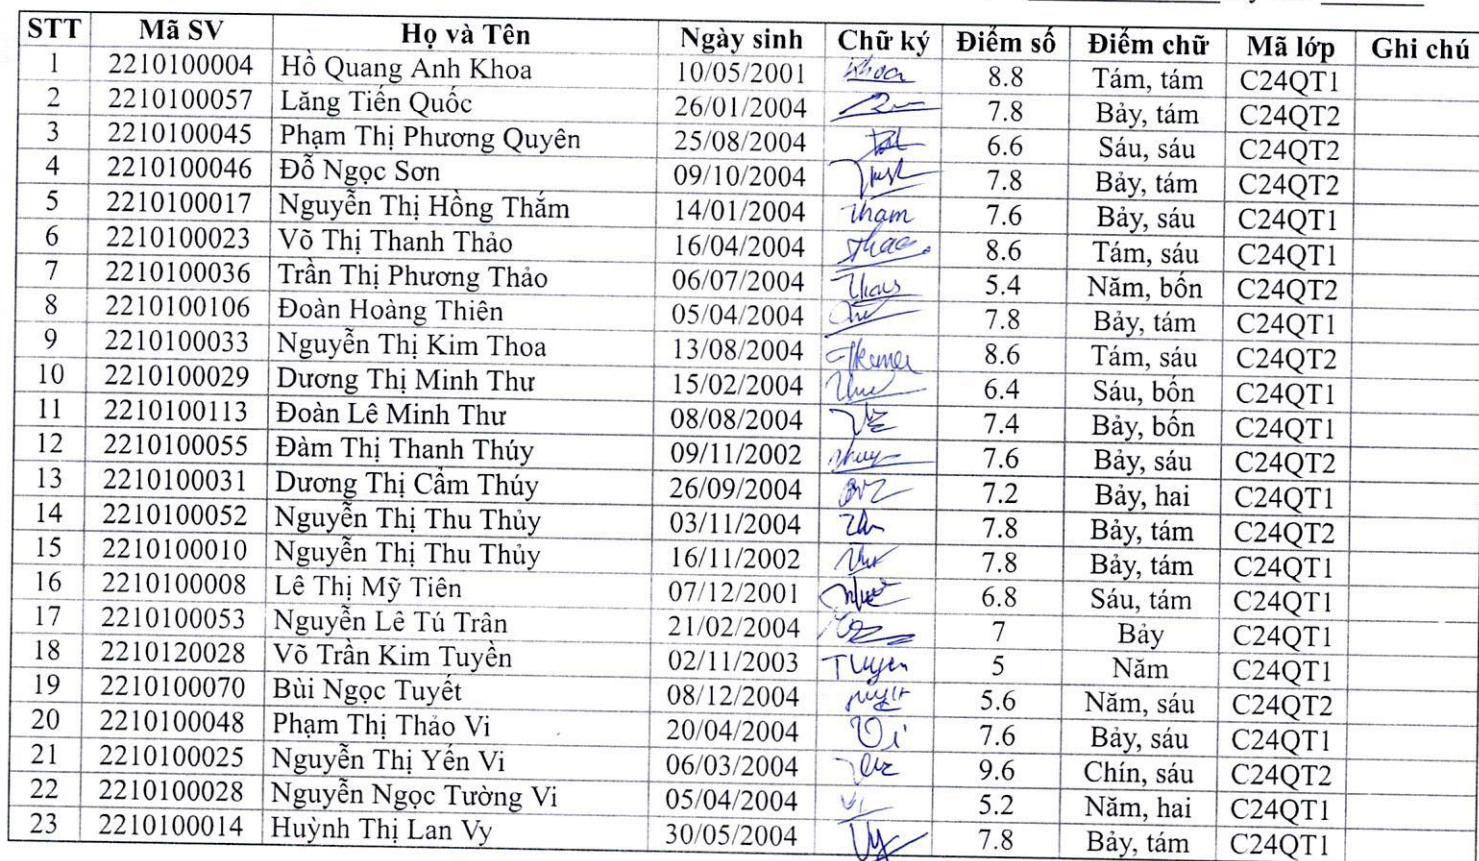 STT Mã SV Họ và Tên Ngày sinh Chữ ký Điểm số Điểm chữ Mã lớp Ghi chú
1 2210100004 Hồ Quang Anh Khoa 10/05/2001 Khoa 8.8 Tám, tám C24QT1
2 2210100057 Lăng Tiến Quốc 26/01/2004 7.8 Bảy, tám C24QT2
3 2210100045 Phạm Thị Phương Quyên 25/08/2004 6.6 Sáu, sáu C24QT2
4 2210100046 Đỗ Ngọc Sơn 09/10/2004 7.8 Bảy, tám C24QT2
5 2210100017 Nguyễn Thị Hồng Thắm 14/01/2004 Tham 7.6 Bảy, sáu C24QT1
6 2210100023 Võ Thị Thanh Thảo 16/04/2004 Thao 8.6 Tám, sáu C24QT1
7 2210100036 Trần Thị Phương Thảo 06/07/2004 5.4 Năm, bốn C24QT2
8 2210100106 Đoàn Hoàng Thiên 05/04/2004 7.8 Bảy, tám C24QT1
9 2210100033 Nguyễn Thị Kim Thoa 13/08/2004 8.6 Tám, sáu C24QT2
10 2210100029 Dương Thị Minh Thư 15/02/2004 6.4 Sáu, bốn C24QT1
11 2210100113 Đoàn Lê Minh Thư 08/08/2004 7.4 Bảy, bốn C24QT1
12 2210100055 Đàm Thị Thanh Thúy 09/11/2002 7.6 Bảy, sáu C24QT2
13 2210100031 Dương Thị Cẩm Thúy 26/09/2004 7.2 Bảy, hai C24QT1
14 2210100052 Nguyễn Thị Thu Thủy 03/11/2004 7.8 Bảy, tám C24QT2
15 2210100010 Nguyễn Thị Thu Thủy 16/11/2002 7.8 Bảy, tám C24QT1
16 2210100008 Lê Thị Mỹ Tiên 07/12/2001 6.8 Sáu, tám C24QT1
17 2210100053 Nguyễn Lê Tú Trân 21/02/2004 7 Bảy C24QT1
18 2210120028 Võ Trần Kim Tuyền 02/11/2003 Tuyen 5 Năm C24QT1
19 2210100070 Bùi Ngọc Tuyết 08/12/2004 5.6 Năm, sáu C24QT2
20 2210100048 Phạm Thị Thảo Vi 20/04/2004 Vi 7.6 Bảy, sáu C24QT1
21 2210100025 Nguyễn Thị Yến Vi 06/03/2004 9.6 Chín, sáu C24QT2
22 2210100028 Nguyễn Ngọc Tường Vi 05/04/2004 Vi 5.2 Năm, hai C24QT1
23 2210100014 Huỳnh Thị Lan Vy 30/05/2004 Vy 7.8 Bảy, tám C24QT1